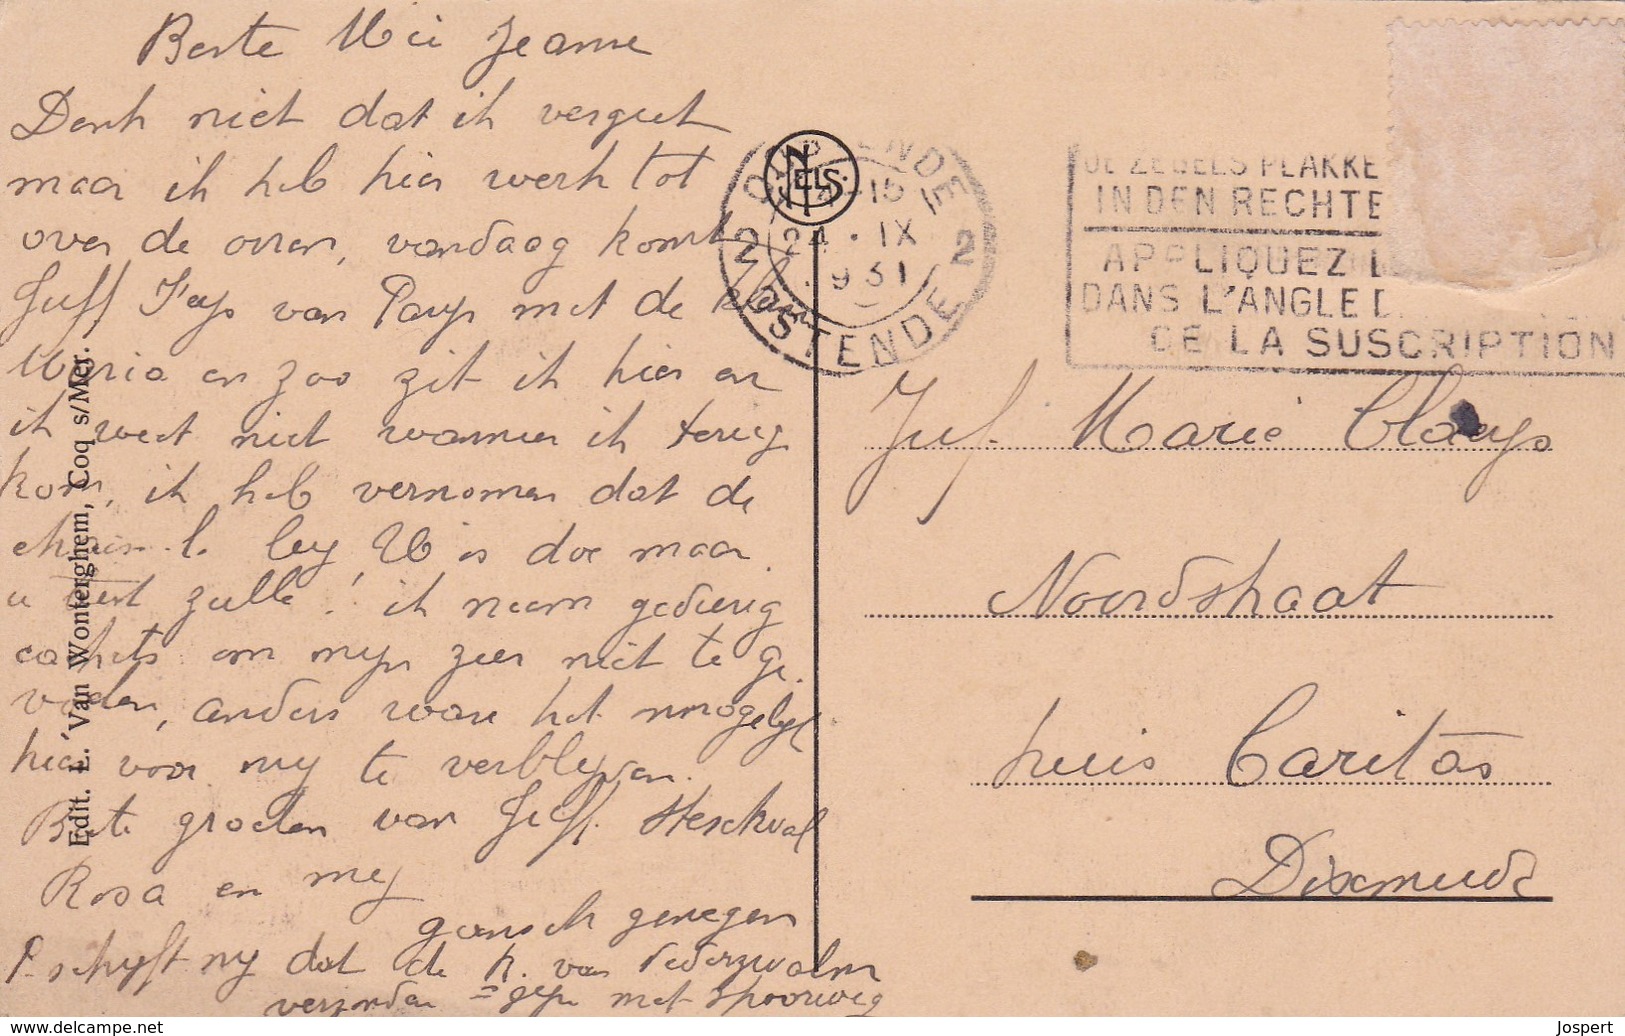 Beste Mei Jeanne
Denk niet dat ik vergeet
maar ik heb hier werk tot
over de ooren, vandaag komt
Juff Feys van Parys met de klein
Maria en zoo zit ik hier en
ik weet niet wanneer ik terug
kom, ik heb vernomen dat de
by U is doe maar
u best zulle! ik neem gedurig
cachets om myn zeer niet te ge
voelen, anders ware het onmogelyk
hier voor my te verblyven.
Beste groeten van Juff.
Rosa en my
gansch genegen
P. schryft my dat de k. van Nederzwalm
verzonden zyn met spoorweg
Edit. L. Van Wonterghem, Coq s/Mer.
NELS
OOSTENDE
2 24 · IX 2
931
OSTENDE
DE ZEGELS PLAKKE
IN DEN RECHTE
APPLIQUEZ L
DANS L'ANGLE D
DE LA SUSCRIPTION
Juf. Marie Claeys
Noordstraat
huis Caritas
Dixmude
delcampe.net
Jospert